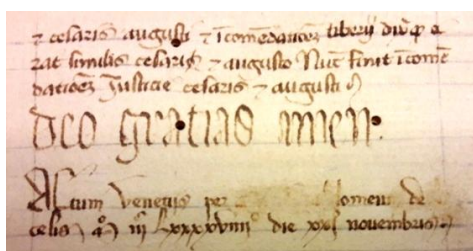 ⁊ cesaris augusti ⁊ ĩcomẽdaucões tiberij
rat similis cesaris ⁊ augusto Nũc finit ĩcomẽ
datiões Justicie cesaris ⁊ augusti
deo gratias amen
Actum Venetijs per lomeus de
celis iiij lxxxxviiij die xxj novembris